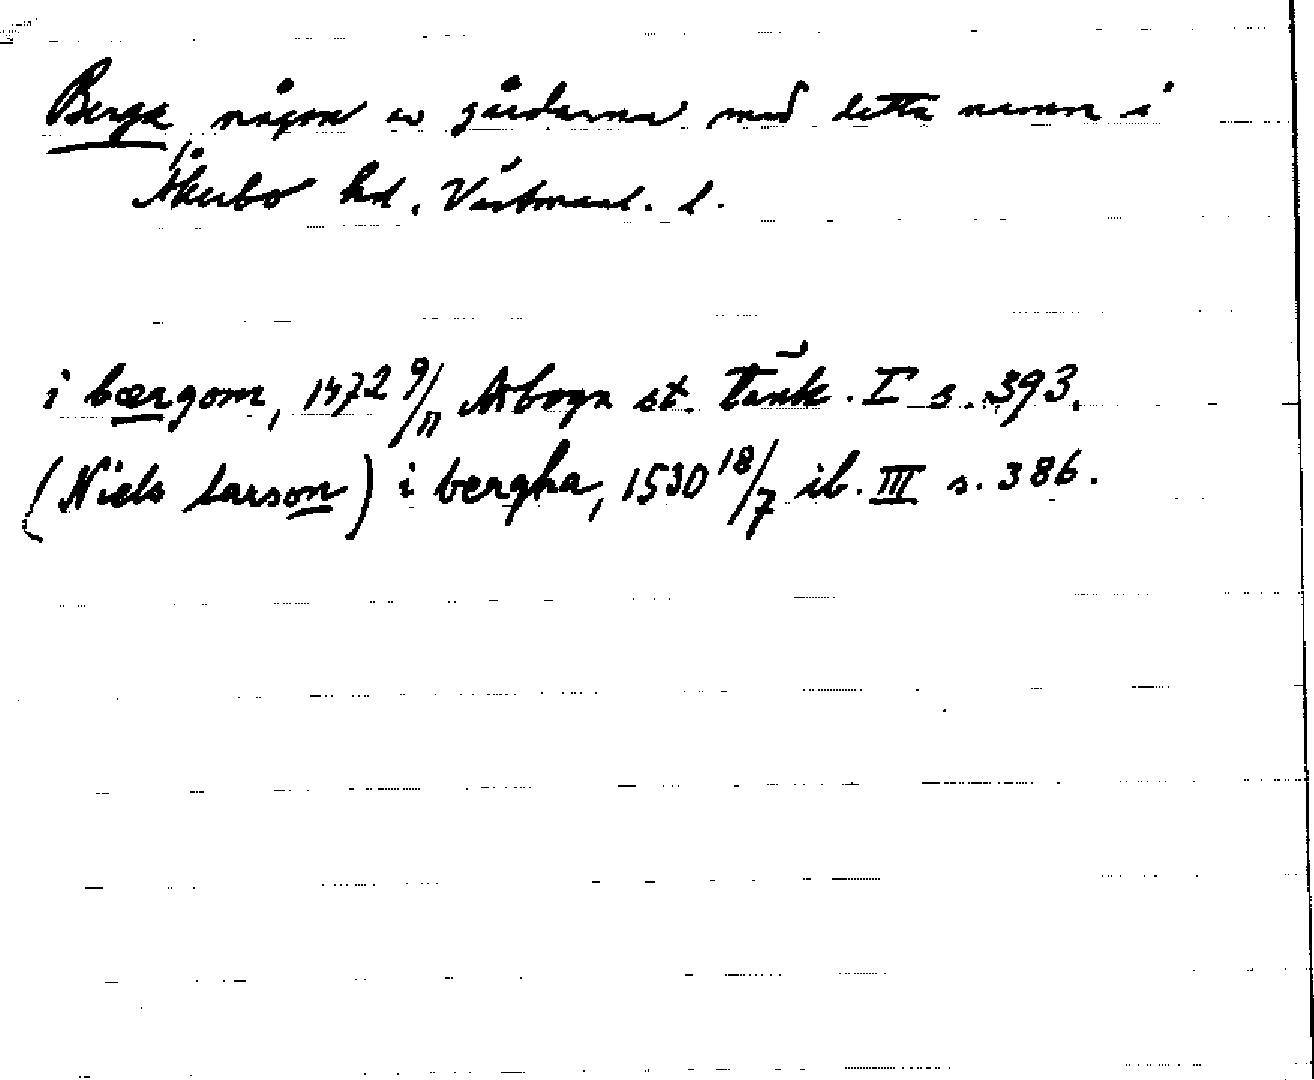 Berga, någon av gårdarna med detta namn i
Åkerbo hd, Västmanl. l.
i bærgom, 1472 9/11 Arboga st. tänk. I s. 393.
(Niels larson) i bergha, 1530 18/7 ib. III s. 386.